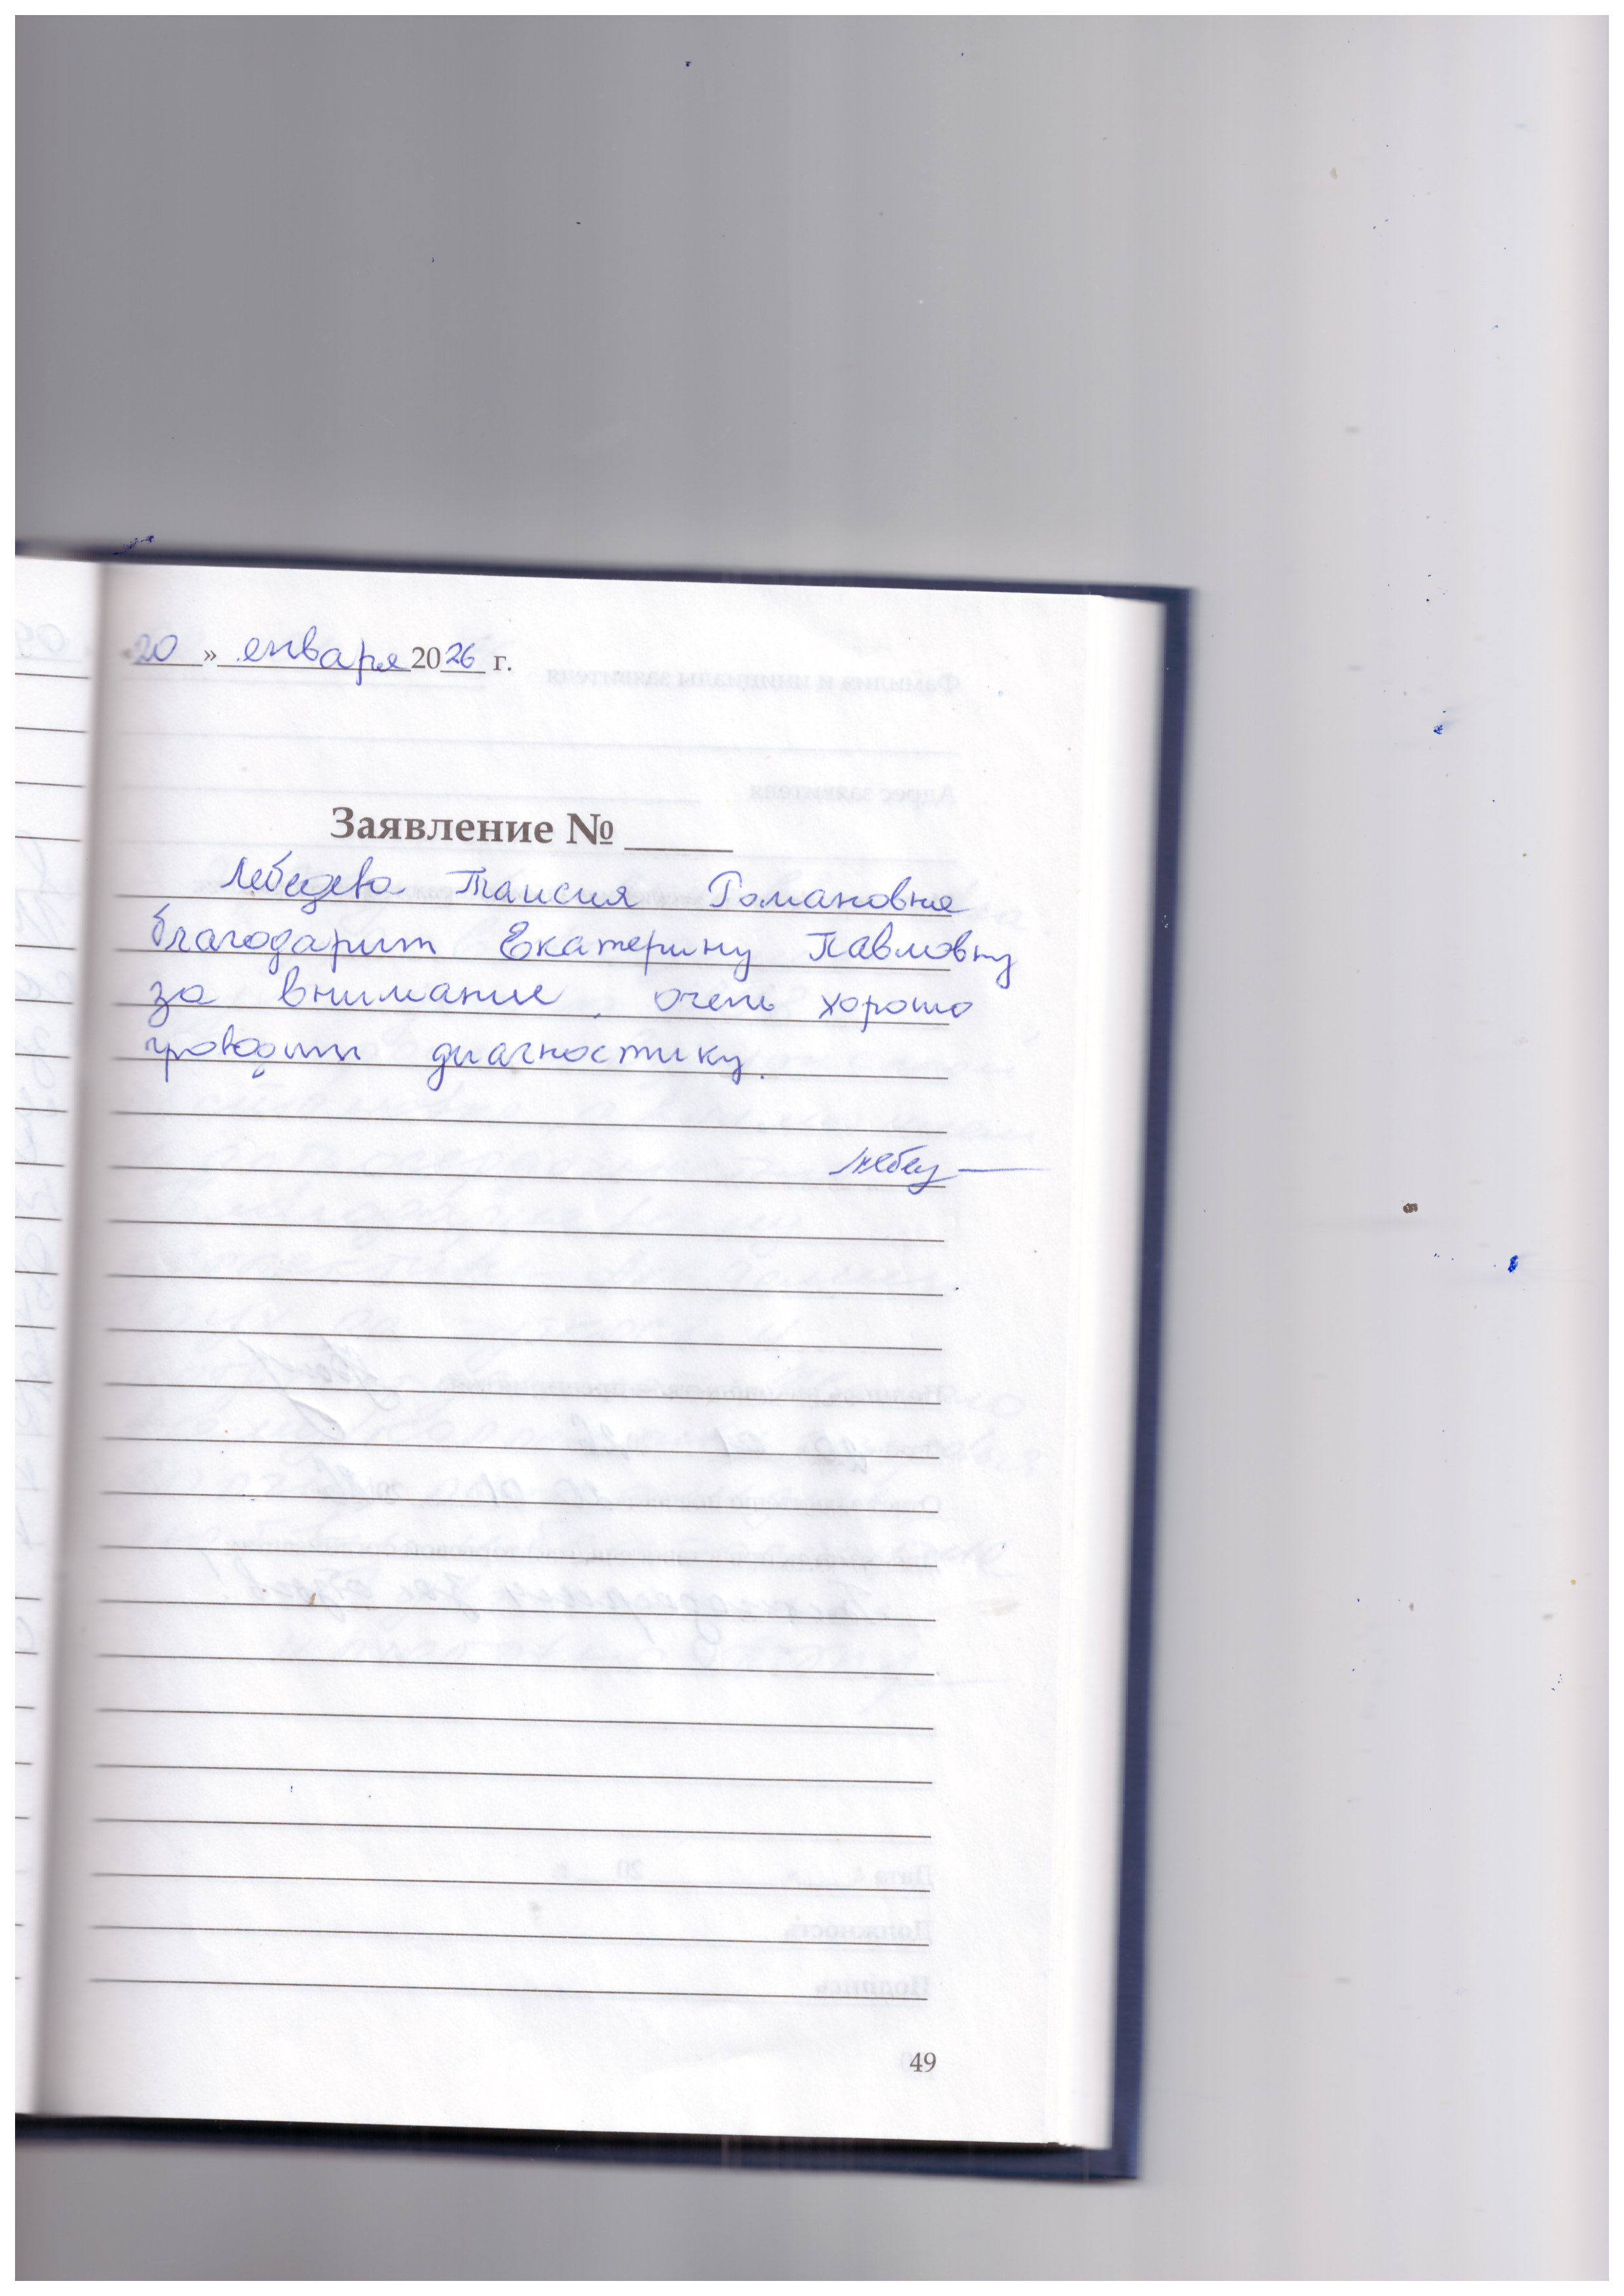 «20» енваря 2026 г.
Заявление № ____
Лебедева Таисия Романовна
благодарит Екатерину Павловну
за внимание, очень хорошо
проводит диагностику.
49